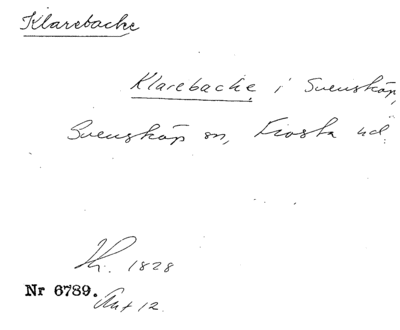 Klarebacke
Klarebacke i Svensköp,
Svensköp sn, Frosta hd.
Kr. 1828
Nr 6789.
Akt 12.